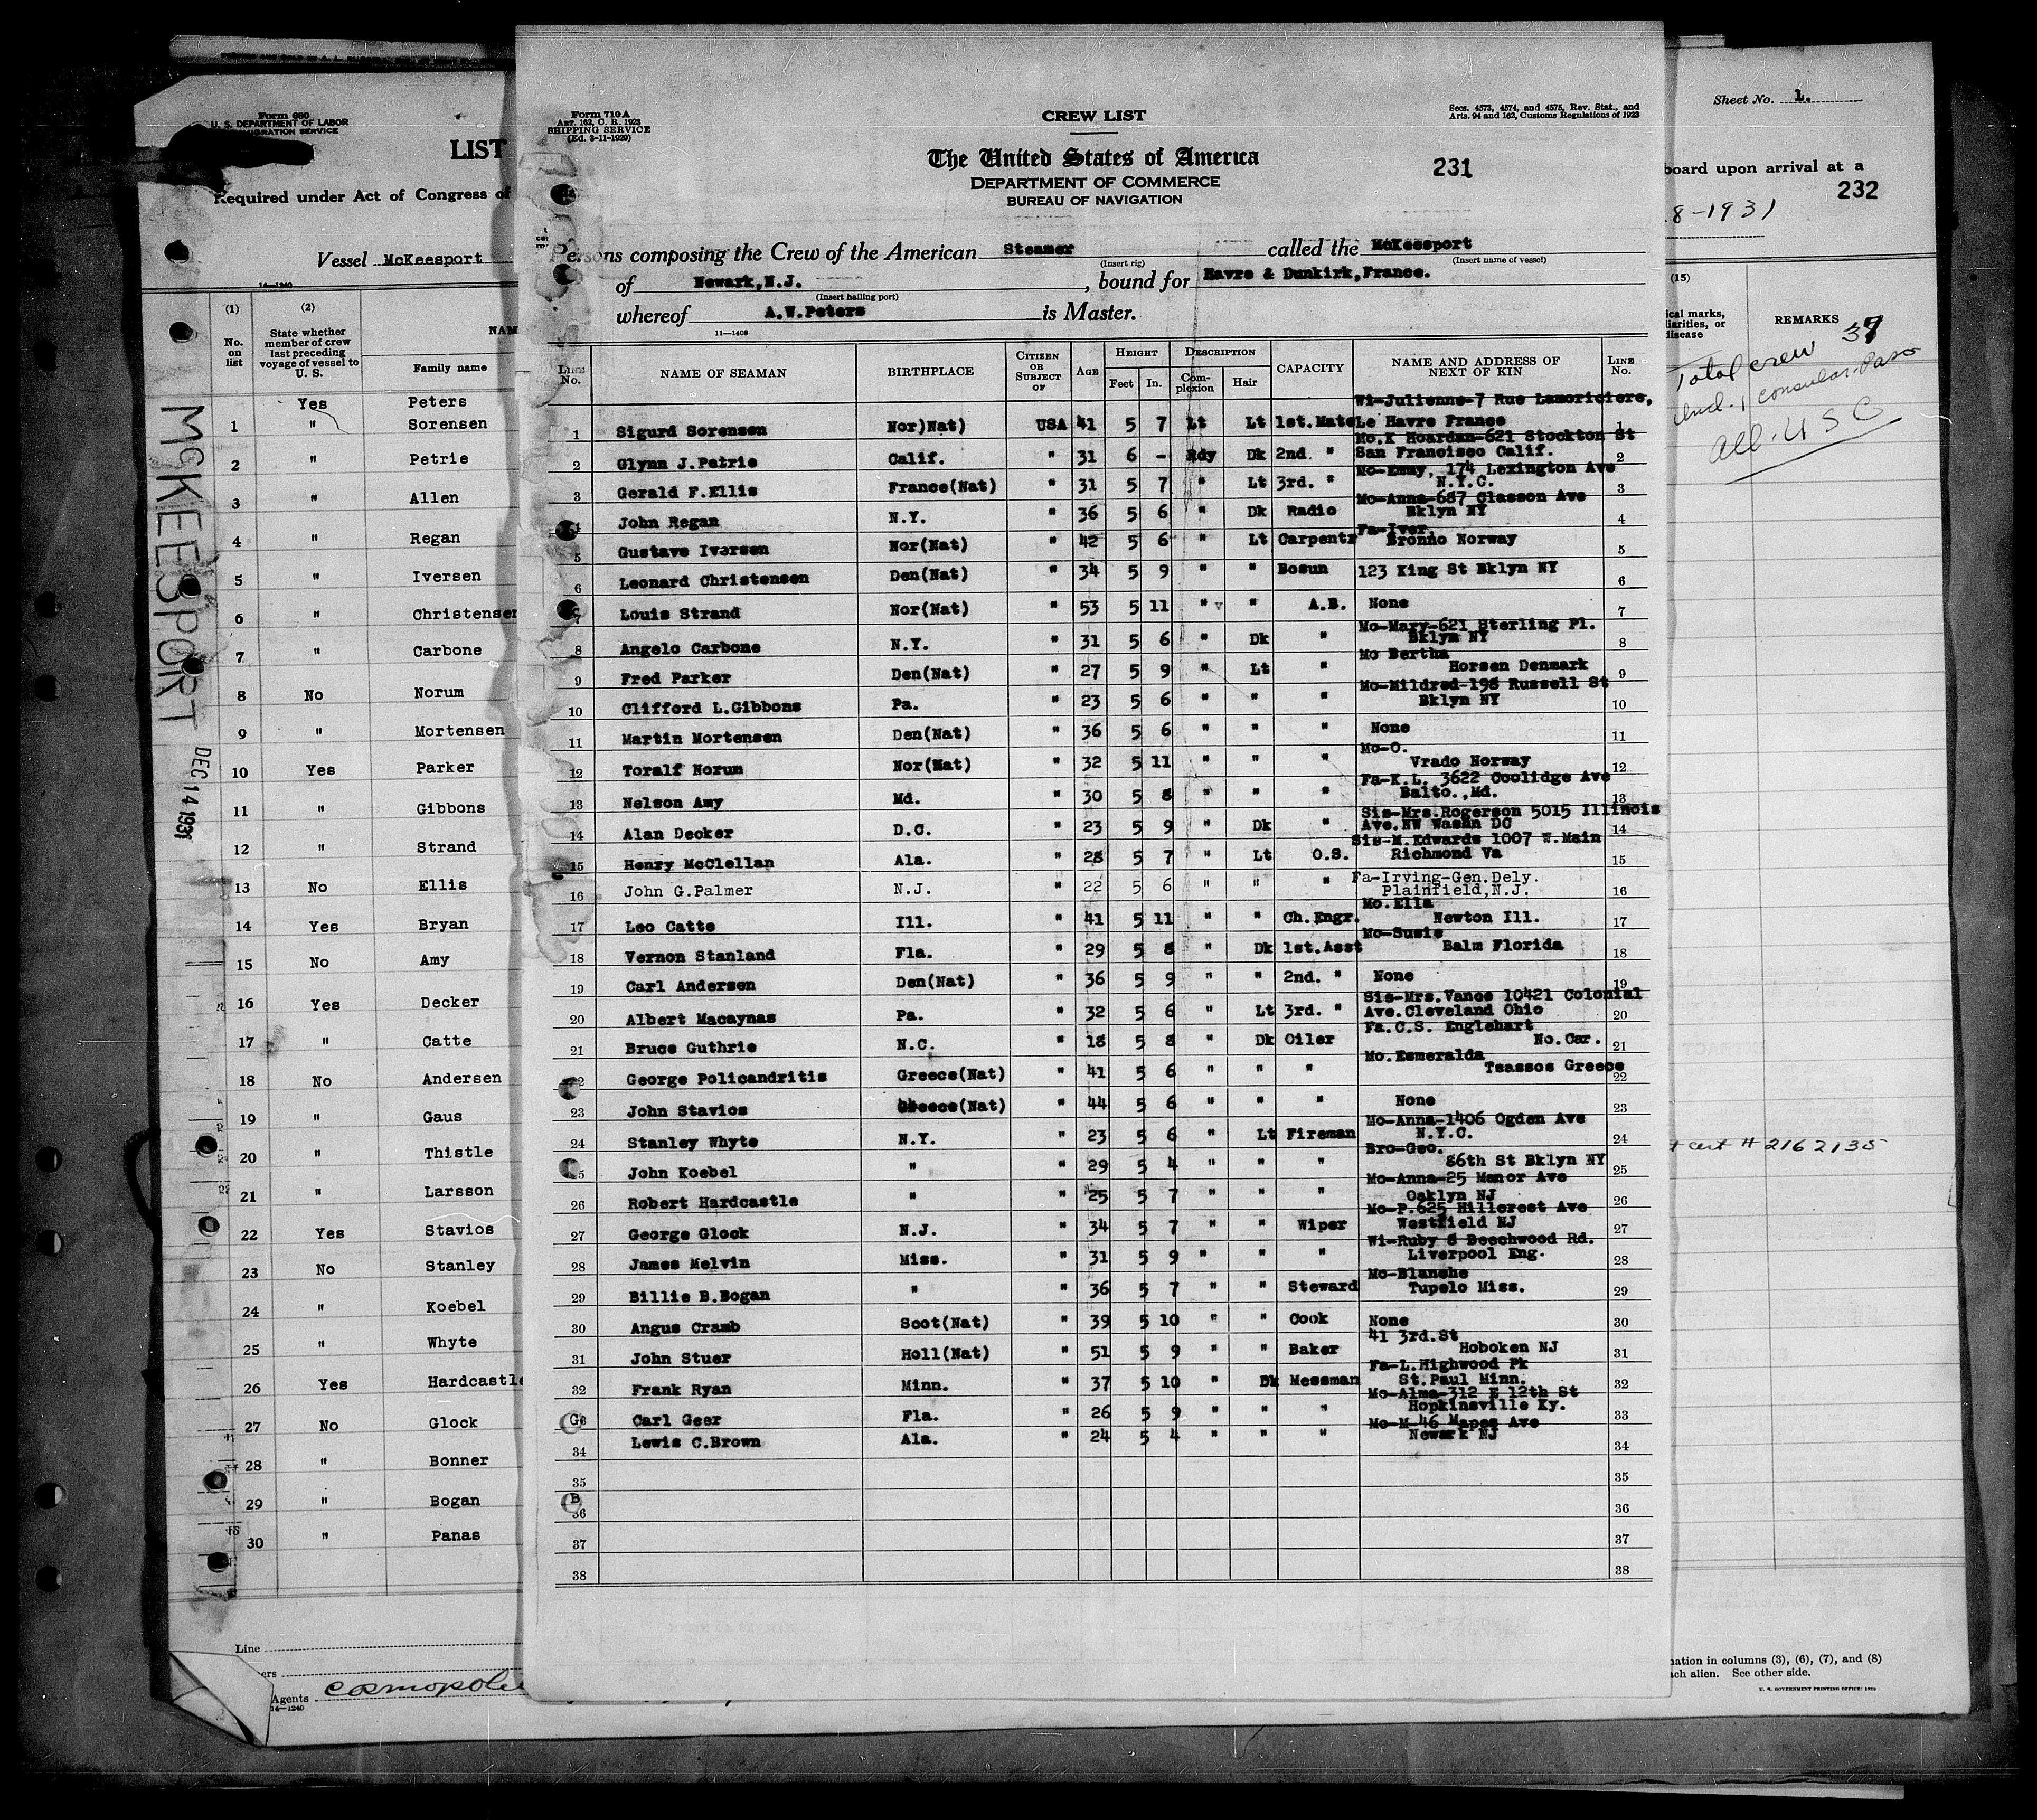 Form 680
U. S. DEPARTMENT OF LABOR
IMMIGRATION SERVICE
LIST
Required under Act of Congress of
Vessel McKeesport
14—1240
(1) (2)
No. on list
State whether member of crew last preceding voyage of vessel to U. S.
NAM
Family name
Yes Peters
1 " Sorensen
2 " Petrie
3 " Allen
4 " Regan
5 " Iversen
6 " Christensen
7 " Carbone
8 No Norum
9 " Mortensen
10 Yes Parker
11 " Gibbons
12 " Strand
13 No Ellis
14 Yes Bryan
15 No Amy
16 Yes Decker
17 " Catte
18 No Andersen
19 " Gaus
20 " Thistle
21 " Larsson
22 Yes Stavios
23 No Stanley
24 " Koebel
25 " Whyte
26 Yes Hardcastle
27 No Glock
28 " Bonner
29 " Bogan
30 " Panas
Line
Agents cosmopoli
14—1240
MCKEESPORT
DEC 14 1931
Form 710 A
Art. 162, C. R. 1923
SHIPPING SERVICE
(Ed. 3-11-1929)
CREW LIST
Secs. 4573, 4574, and 4575, Rev. Stat., and
Arts. 94 and 162, Customs Regulations of 1923
The United States of America
231
DEPARTMENT OF COMMERCE
BUREAU OF NAVIGATION
Persons composing the Crew of the American Steamer called the McKeesport
(Insert rig) (Insert name of vessel)
of Newark,N.J. , bound for Havre & Dunkirk,France.
(Insert hailing port)
whereof A.W.Peters is Master.
11—1408
LINE No. NAME OF SEAMAN BIRTHPLACE CITIZEN OR SUBJECT OF AGE HEIGHT Feet In. DESCRIPTION Complexion Hair CAPACITY NAME AND ADDRESS OF NEXT OF KIN LINE No.
Wi-Julienne-7 Rue Lamoriciere,
1 Sigurd Sorensen Nor)Nat) USA 41 5 7 Lt Lt 1st.Mate Le Havre France 1
Mo.K Hoardan-621 Stockton St
2 Glynn J.Petrie Calif. " 31 6 - Rdy Dk 2nd. " San Francisco Calif. 2
Mo-Emmy, 174 Lexington Ave
3 Gerald F.Ellis France(Nat) " 31 5 7 " Lt 3rd. " N.Y.C. 3
Mo-Anna-687 Classon Ave
4 John Regan N.Y. " 36 5 6 " Dk Radio Bklyn NY 4
Fa-Iver
5 Gustave Iversen Nor(Nat) " 42 5 6 " Lt Carpentr Bronno Norway 5
6 Leonard Christensen Den(Nat) " 34 5 9 " " Bosun 123 King St Bklyn NY 6
7 Louis Strand Nor(Nat) " 53 5 11 " " A.B. None 7
Mo-Mary-621 Sterling Pl.
8 Angelo Carbone N.Y. " 31 5 6 " Dk " Bklyn NY 8
Mo Bertha
9 Fred Parker Den(Nat) " 27 5 9 " Lt " Horsen Denmark 9
Mo-Mildred-198 Russell St
10 Clifford L.Gibbons Pa. " 23 5 6 " " " Bklyn NY 10
11 Martin Mortensen Den(Nat) " 36 5 6 " " " None 11
Mo-O.
12 Toralf Norum Nor(Nat) " 32 5 11 " " " Vrado Norway 12
Fa-K.L. 3622 Coolidge Ave
13 Nelson Amy Md. " 30 5 8 " " " Balto.,Md. 13
Sis-Mrs.Rogerson 5015 Illinois
14 Alan Decker D.C. " 23 5 9 " Dk " Ave.NW Washn DC 14
Sis-M.Edwards 1007 W.Main
15 Henry McClellan Ala. " 28 5 7 " Lt O.S. Richmond Va 15
Fa-Irving-Gen.Dely.
16 John G.Palmer N.J. " 22 5 6 " " " Plainfield,N.J. 16
Mo.Ella
17 Leo Catte Ill. " 41 5 11 " " Ch.Engr. Newton Ill. 17
Mo-Susie
18 Vernon Stanland Fla. " 29 5 8 " Dk 1st.Asst Balm Florida 18
19 Carl Andersen Den(Nat) " 36 5 9 " " 2nd. " None 19
Sis-Mrs.Vance 10421 Colonial
20 Albert Macaynas Pa. " 32 5 6 " Lt 3rd. " Ave.Cleveland Ohio 20
Fa.C.S. Englehart
21 Bruce Guthrie N.C. " 18 5 8 " Dk Oiler No.Car. 21
Mo.Esmeralda
22 George Policandritis Greece(Nat) " 41 5 6 " " " Tsassos Greece 22
23 John Stavios Greece(Nat) " 44 5 6 " " " None 23
Mo-Anna-1406 Ogden Ave
24 Stanley Whyte N.Y. " 23 5 6 " Lt Fireman N.Y.C. 24
Bro-Geo.
25 John Koebel " " 29 5 4 " " " 86th St Bklyn NY 25
Mo-Anna-25 Manor Ave
26 Robert Hardcastle " " 25 5 7 " " " Oaklyn NJ 26
Mo-P.625 Hillcrest Ave
27 George Glock N.J. " 34 5 7 " " Wiper Westfield NJ 27
Wi-Ruby 8 Beechwood Rd.
28 James Melvin Miss. " 31 5 9 " " " Liverpool Eng. 28
Mo-Blanche
29 Billie B.Bogan " " 36 5 7 " " Steward Tupelo Miss. 29
30 Angus Cramb Scot(Nat) " 39 5 10 " " Cook None 30
41 3rd.St
31 John Stuer Holl(Nat) " 51 5 9 " " Baker Hoboken NJ 31
Fa-L.Highwood Pk
32 Frank Ryan Minn. " 37 5 10 " Dk Messman St.Paul Minn. 32
Mo-Alma-312 E 12th St
Carl Geer Fla. " 26 5 9 " " " Hopkinsville Ky. 33
Mo-M-46 Mapes Ave
34 Lewis C.Brown Ala. " 24 5 4 " " " Newark NJ 34
35 35
36 36
37 37
38 38
Sheet No. 1.
board upon arrival at a
232
8-1931
(15)
ical marks,
liarities, or
disease
REMARKS
Total crew 37
incl. 1 consular Pass
All. U S C
cert # 2162135
nation in columns (3), (6), (7), and (8)
ach alien. See other side.
U. S. GOVERNMENT PRINTING OFFICE: 1929